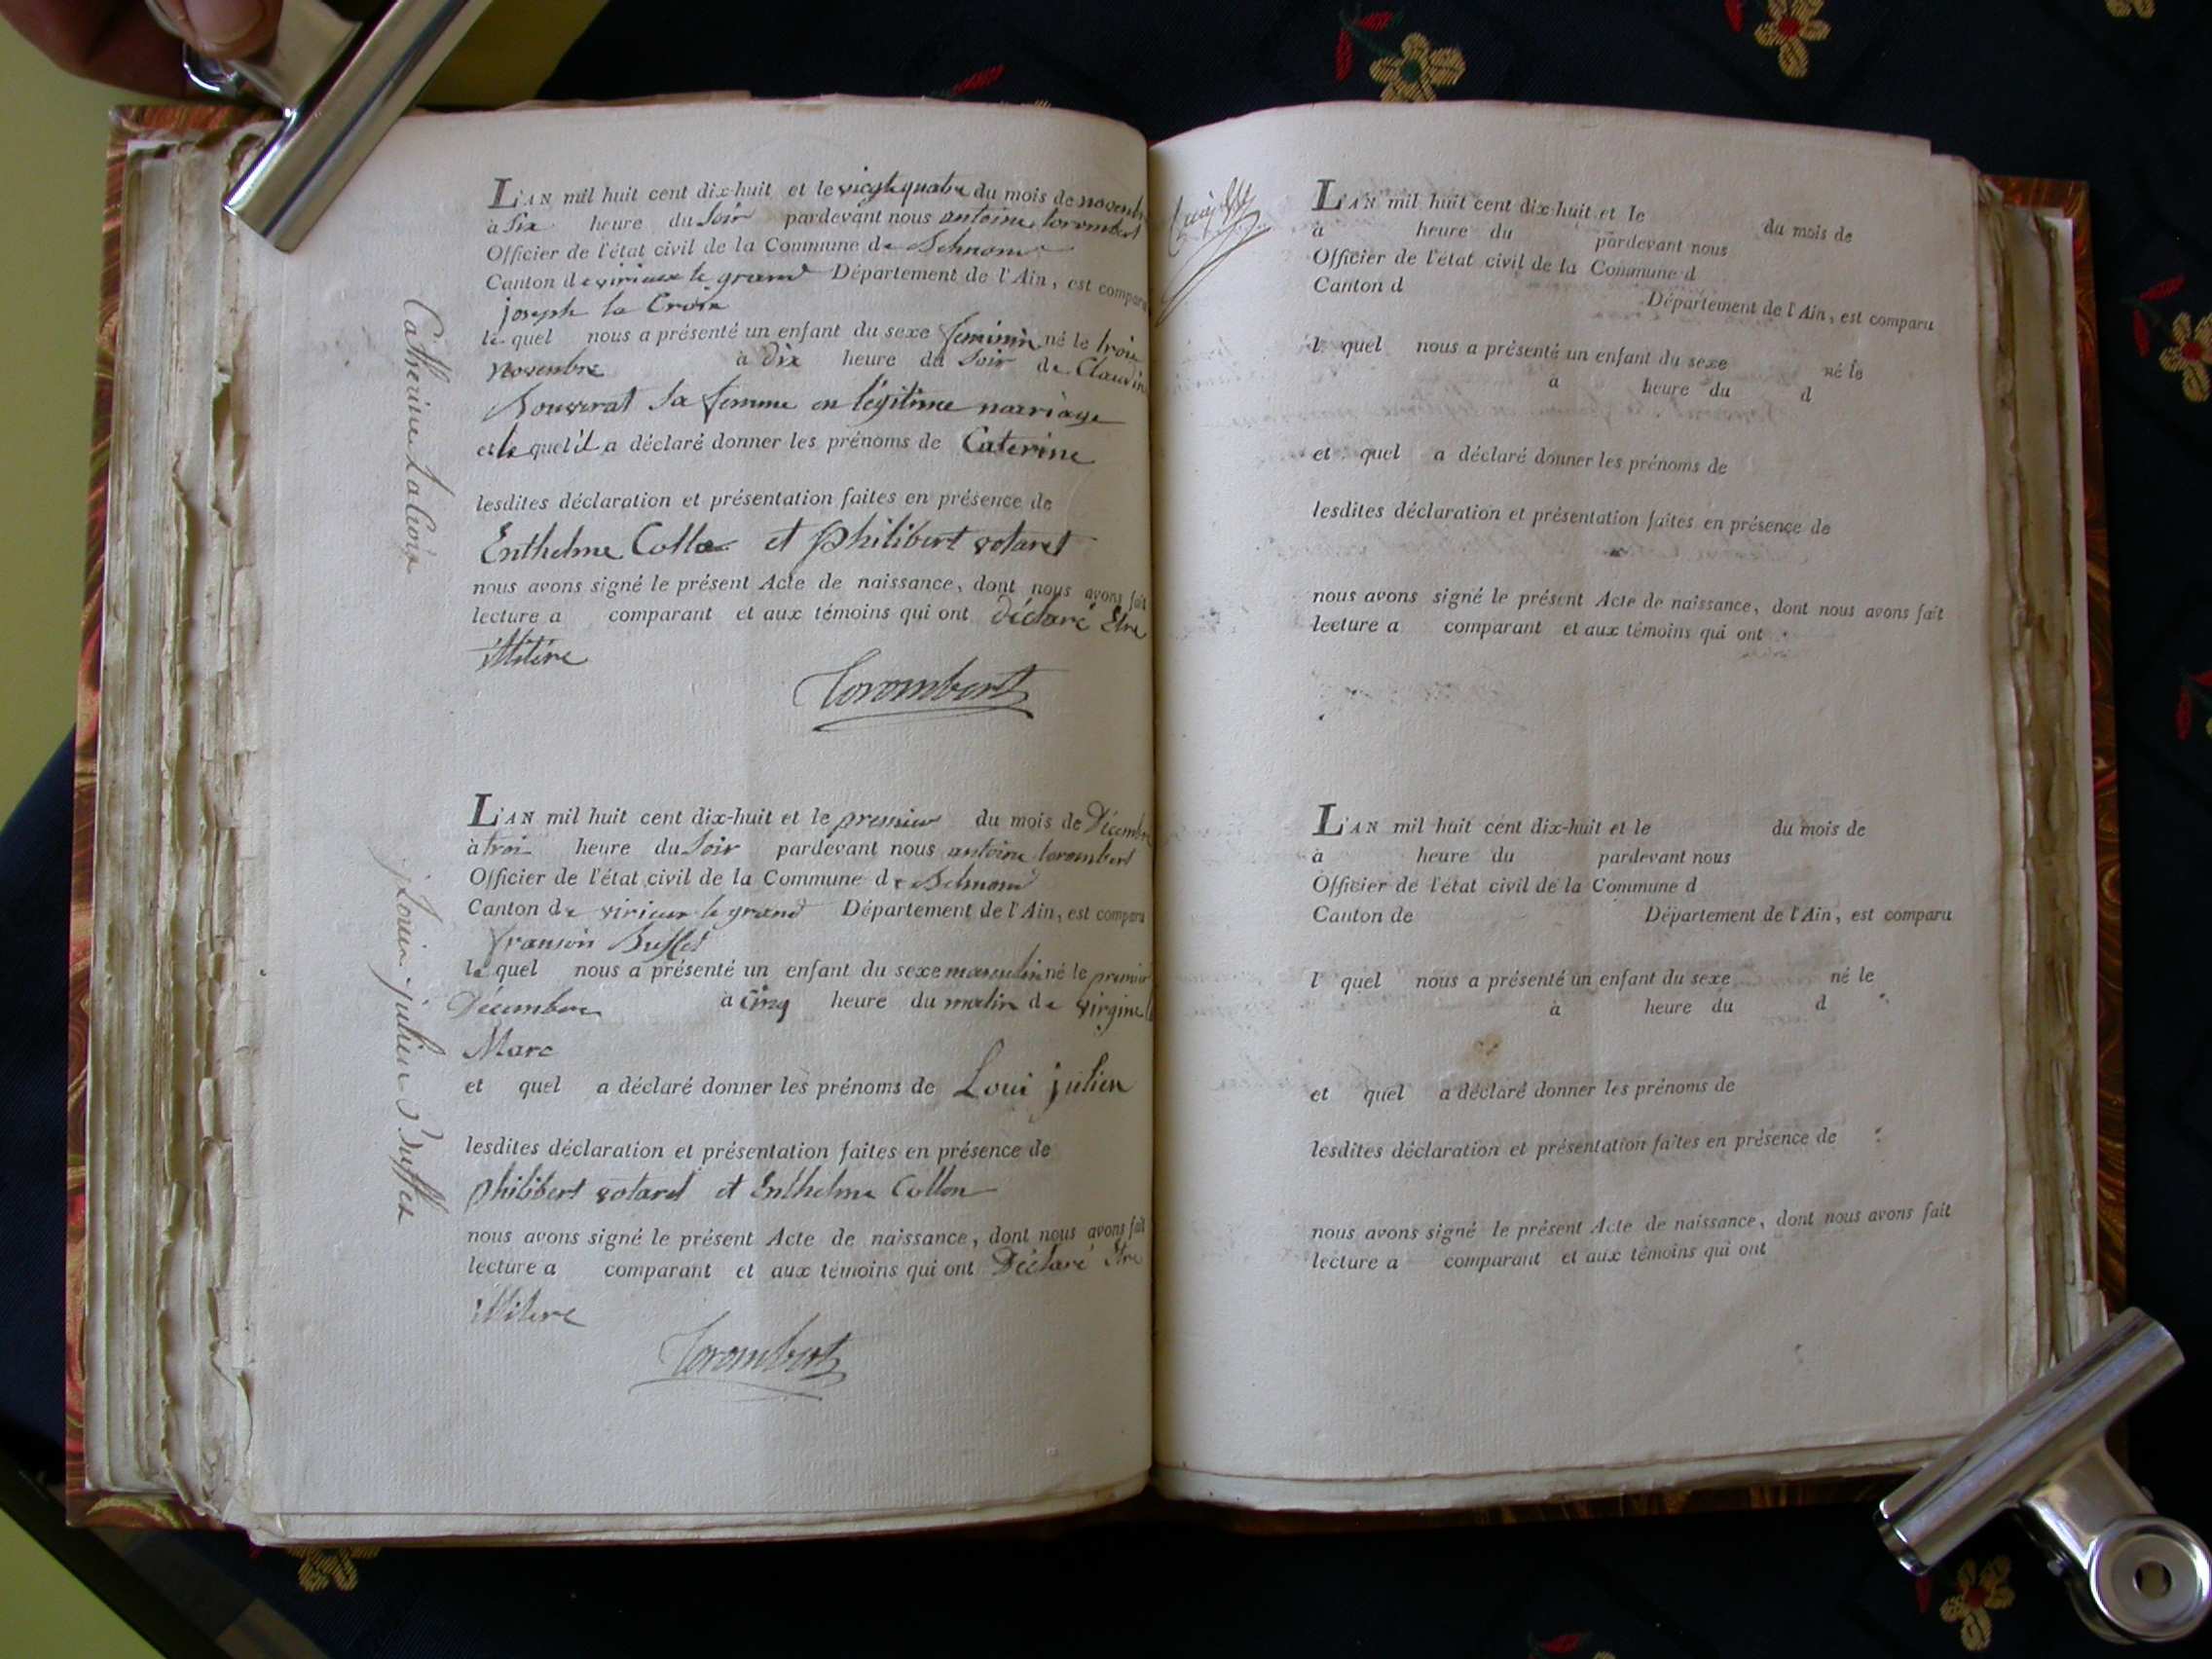 L'AN mil huit cent dix-huit et le vingt quatre du mois de novembre
à Six heure du Soir pardevant nous antoine torombert
Officier de l'état civil de la Commune de Belmond
Canton de virieux le grand Département de l'Ain, est comparu
joseph la Croix
le quel nous a présenté un enfant du sexe feminin né le trois
Novembre à dix heure du Soir de Claudine
Bouverat sa femme en légitime mariage
et le quel il a déclaré donner les prénoms de Caterine
lesdites déclaration et présentation faites en présence de
Enthelme Collo et philibert votaret
nous avons signé le présent Acte de naissance, dont nous avons fait
lecture a comparant et aux témoins qui ont déclaré Etre
illitére
Torombert
Catherine Lacroix
L'AN mil huit cent dix-huit et le premier du mois de Décembre
à troi heure du Soir pardevant nous antoine torombert
Officier de l'état civil de la Commune de Belmond
Canton de virieux le grand Département de l'Ain, est comparu
fransois Buffet
le quel nous a présenté un enfant du sexe masculin né le premier
Décembre à cinq heure du matin de virginie
Marc
et quel a déclaré donner les prénoms de Loui julien
lesdites déclaration et présentation faites en présence de
philibert votaret et Enthelme Collon
nous avons signé le présent Acte de naissance, dont nous avons fait
lecture a comparant et aux témoins qui ont Déclaré Etre
illitere
Torombert
Louis julien Buffet
L'AN mil huit cent dix-huit et le du mois de
à heure du pardevant nous
Officier de l'état civil de la Commune d
Canton d Département de l'Ain, est comparu
l quel nous a présenté un enfant du sexe né le
à heure du d
et quel a déclaré donner les prénoms de
lesdites déclaration et présentation faites en présence de
nous avons signé le présent Acte de naissance, dont nous avons fait
lecture a comparant et aux témoins qui ont
L'AN mil huit cent dix-huit et le du mois de
à heure du pardevant nous
Officier de l'état civil de la Commune d
Canton de Département de l'Ain, est comparu
l quel nous a présenté un enfant du sexe né le
à heure du d
et quel a déclaré donner les prénoms de
lesdites déclaration et présentation faites en présence de
nous avons signé le présent Acte de naissance, dont nous avons fait
lecture a comparant et aux témoins qui ont